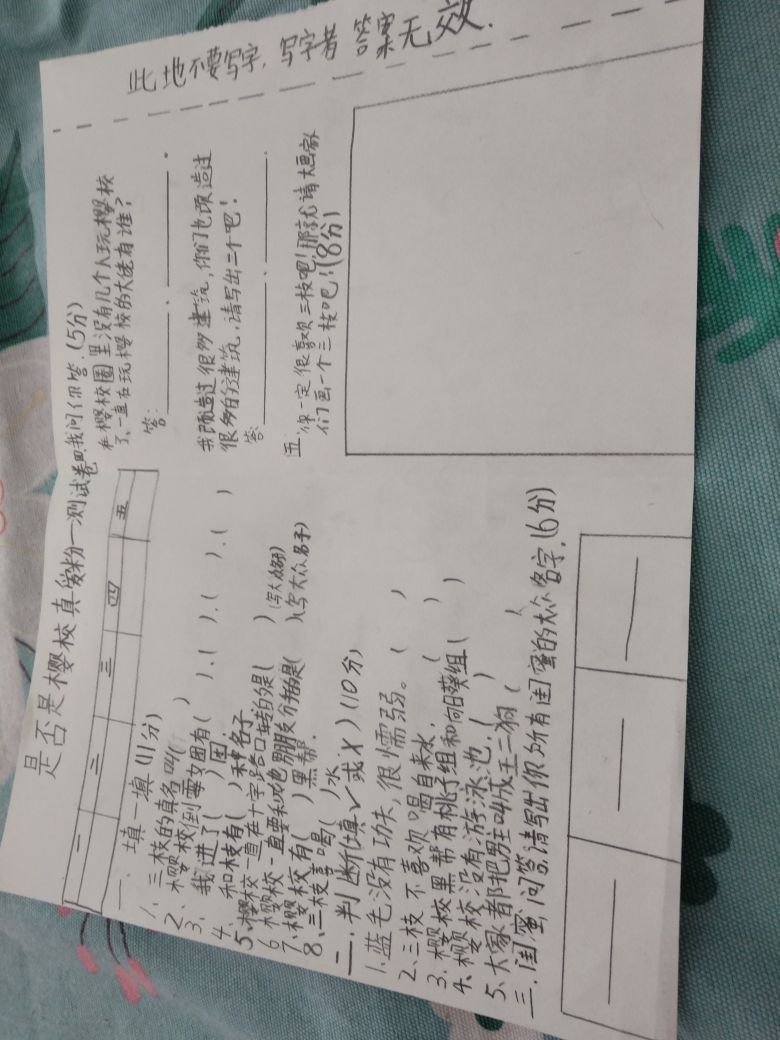 是否是樱校真爱粉—测试卷
一 二 三 四 五
一、填一填(11分)
1、三枝的真名叫( )
2、樱校到霉女团有( ).( ).( ).( )
3、我进了( )团.
4、和枝有( )种名子
5、樱校一直在十字路口转的是( )(写大众名子)
6、樱校一直要和他朋友分拍的是( )(写大众名子)
7、樱校有( )黑帮.
8、三枝喜喝( )水
二.判断(填✓或X)(10分)
1.蓝毛没有功夫,很懦弱。( )
2、三枝不喜欢喝自来水.( )
3、樱校黑帮有桃子组和向日葵组( )
4、樱校没有游泳池.( )
5、大家都把男主叫成王二狗( )
三.闺蜜问答,请写出你所有闺蜜的大众名字.(6分)
四.我问你答.(5分)
在樱校圈里没有几个人玩樱校
了、一直在玩樱校的大佬有谁?
答: 、 。
我改造过很多建筑,你们也改造过
很多的建筑,请写出二个吧!
答: 、 .
五、你一定很喜欢三枝吧!那就请大画家
们画一个三枝吧!(8分)
此地不要写字,写字者 答案无效.